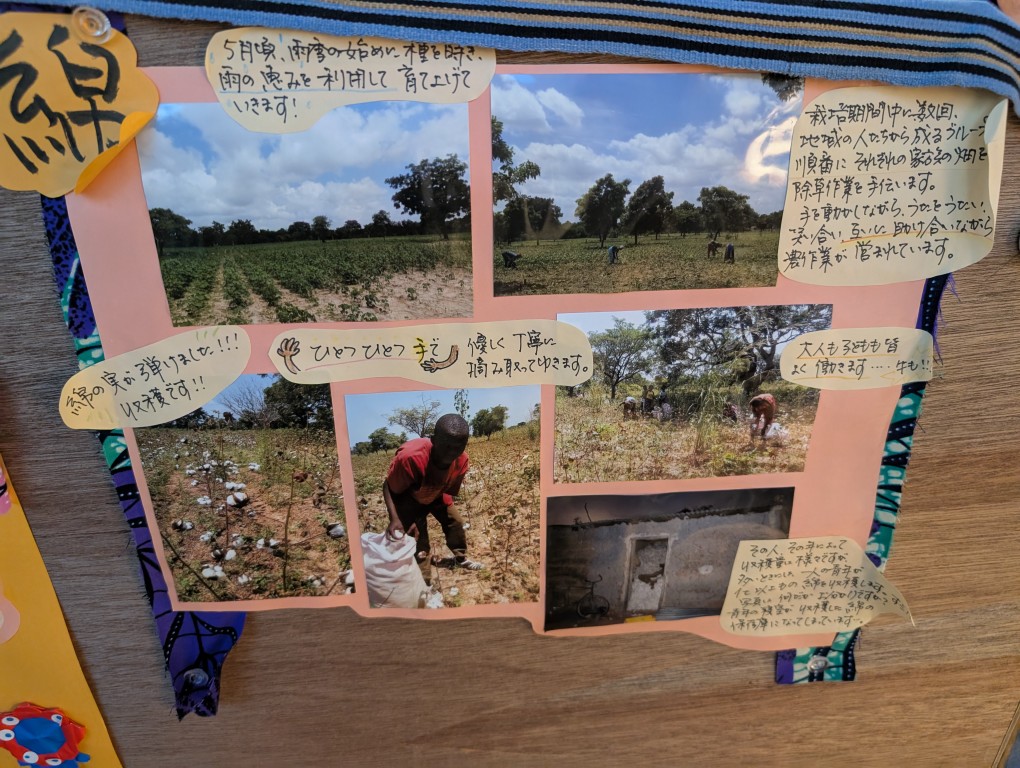 綿
5月頃、雨季の始めに種を蒔き、
雨の恵みを利用して育て上げて
いきます!
栽培期間中に数回、
地域の人たちから成るグループで
順番にそれぞれの家族の畑を
除草作業を手伝います。
手を動かしながら、うたをうたい、
笑い合い、互いに助け合いながら
農作業が営まれています。
綿の実が弾けました!!!
収穫です!!
ひとつひとつ手で 優しく丁寧に
摘み取ってゆきます。
大人も子どもも皆
よく働きます....牛も!!
その人、その年によって
収穫量は様々ですが
多いときには、一人の青年が
以上もの綿を収穫します。
写真に何だかお分かりですか
青年の寝室が収穫した綿の
保管庫になってしまっています